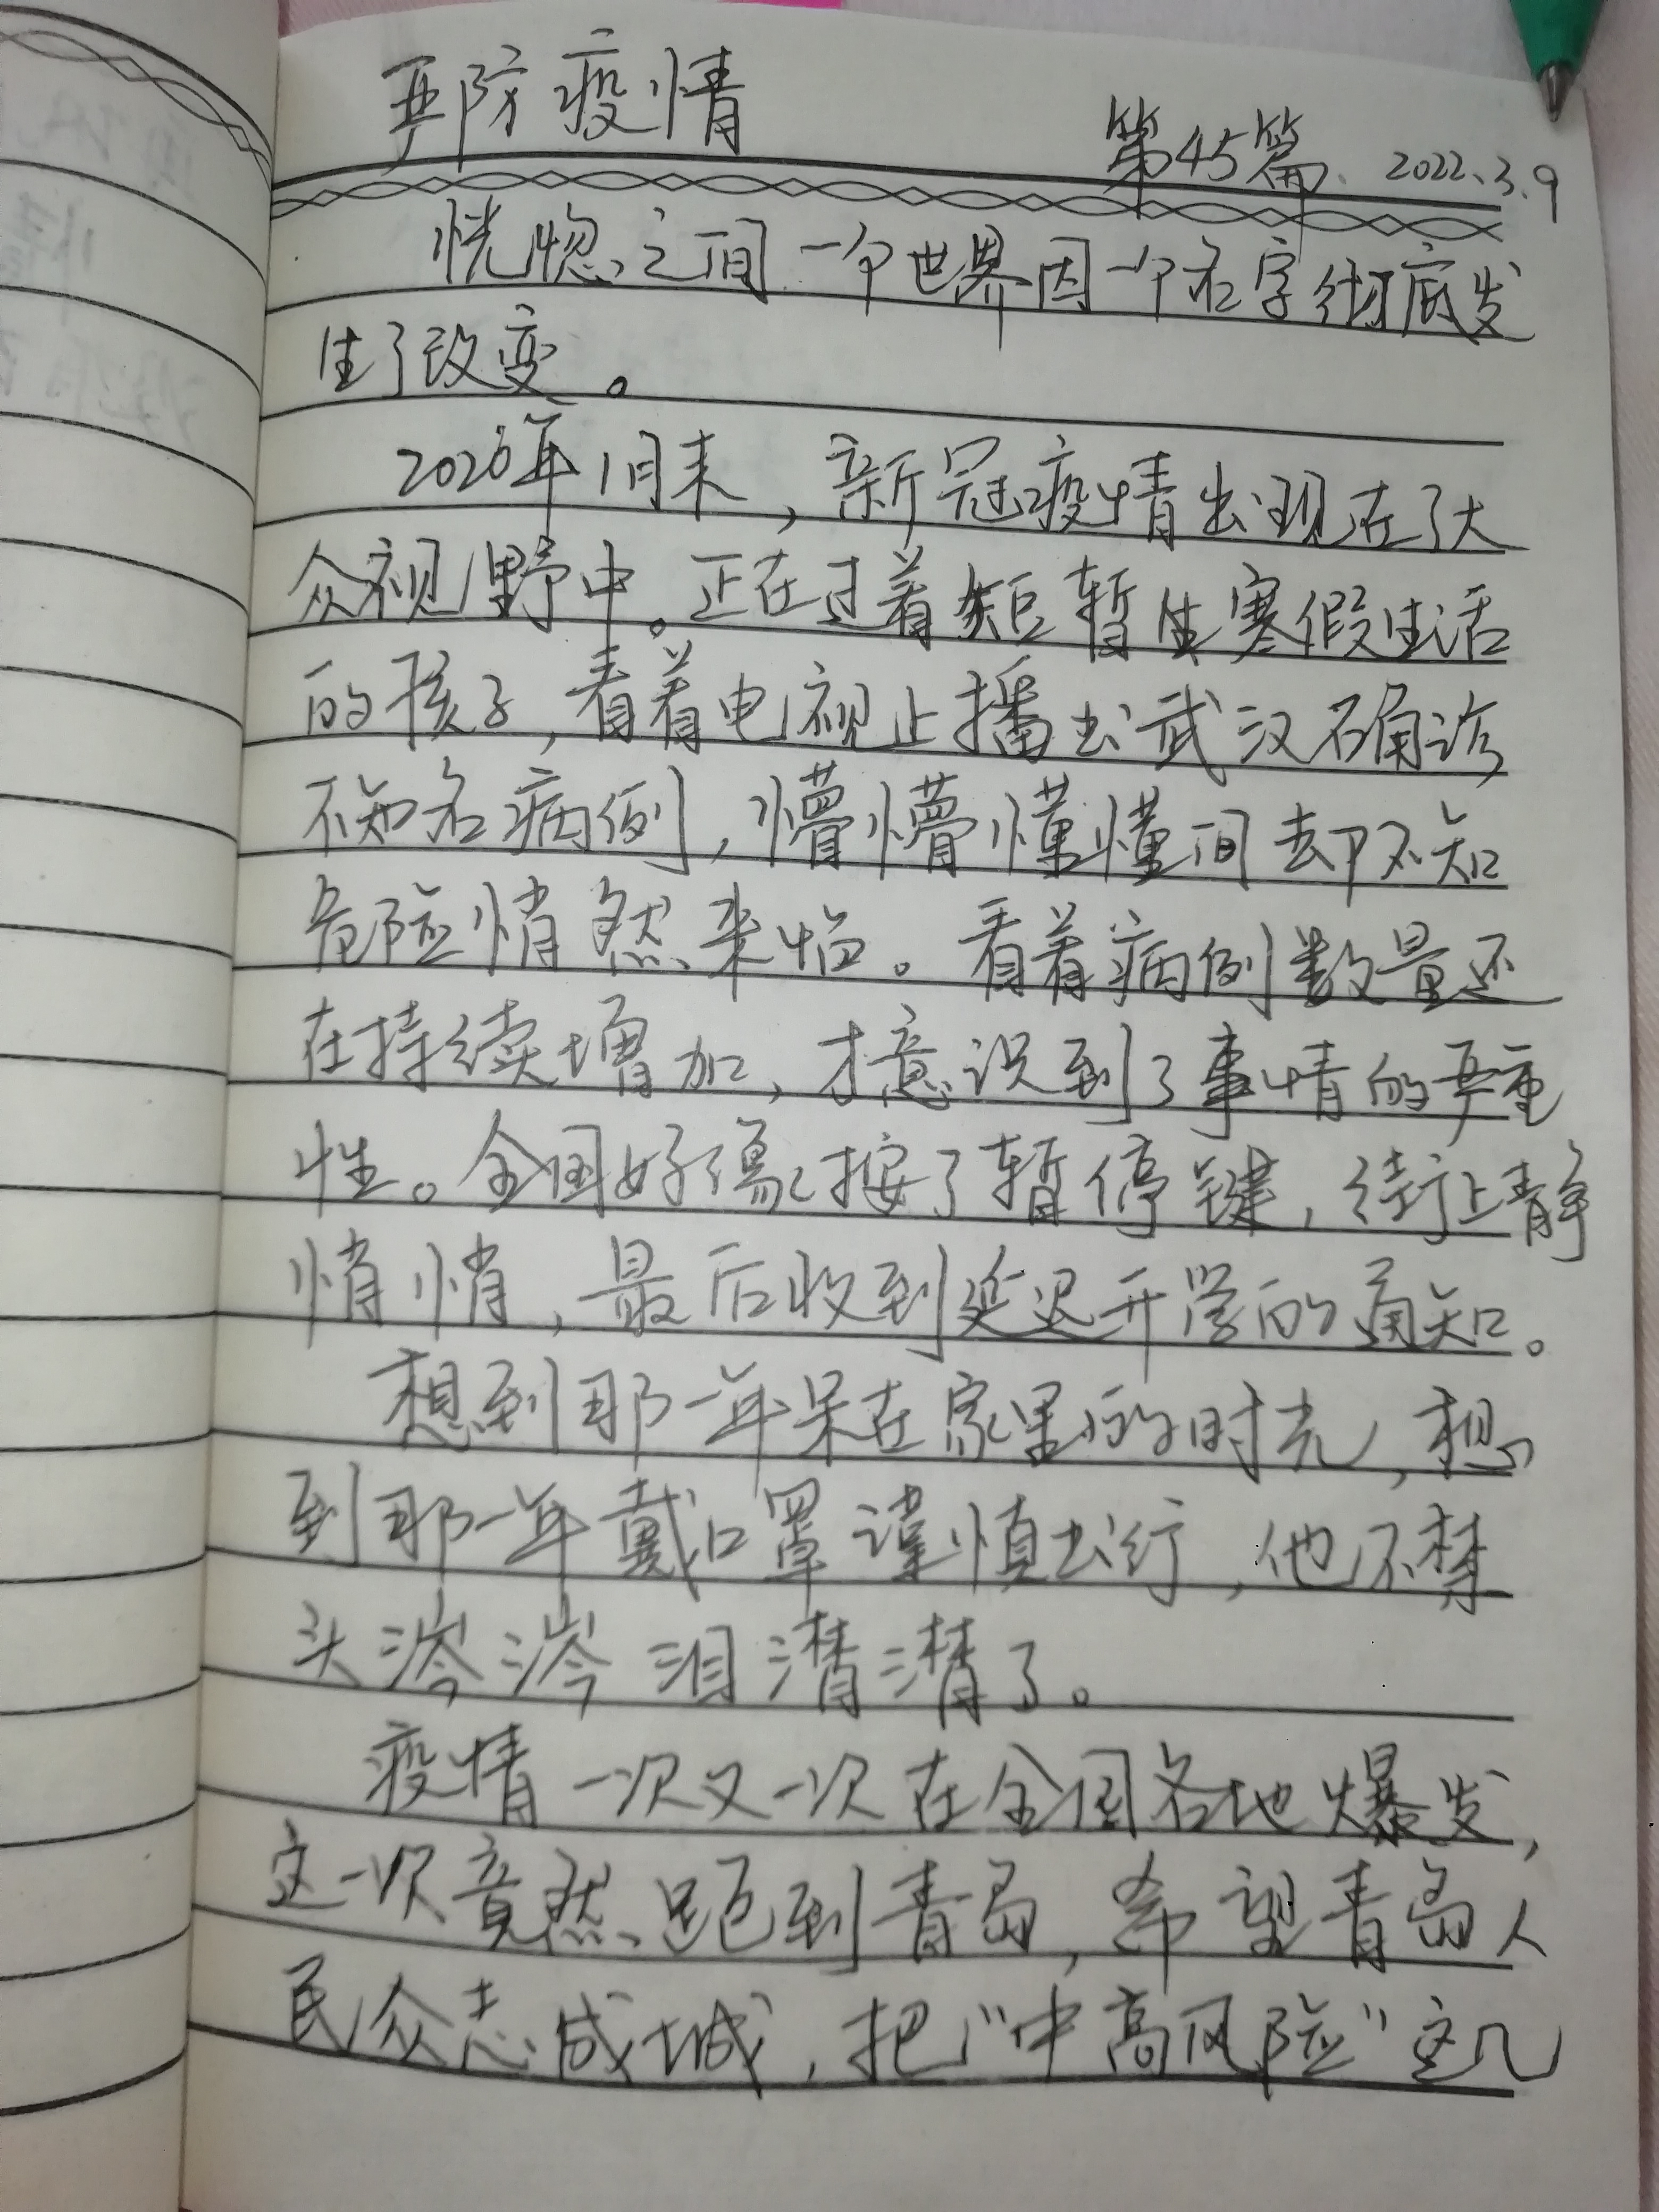 再防疫情
第45篇、2022.3.9
恍惚之间一个世界因一个名字彻底发
生了改变。
2020年1月末，新冠疫情出现在了大
众视野中。正在过着短暂生寒假生活
的孩子，看着电视上播出武汉确诊
不知名病例，懵懵懂懂间却不知
危险悄然来临。看着病例数量还
在持续增加，才意识到了事情的严重
性。全国好像按了暂停键，街上静
悄悄，最后收到延迟开学的通知。
想到那一年呆在家里的时光，想
到那一年戴口罩谨慎出行，他不禁
头涔涔泪潸潸了。
疫情一次又一次在全国各地爆发，
这一次竟然跑到青岛，希望青岛人
民众志成城，把“中高风险”这几